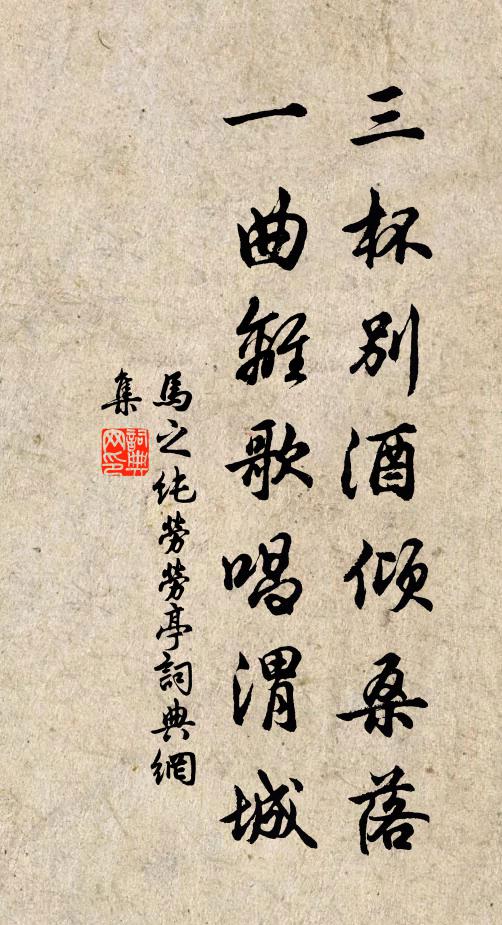 三杯别酒倾桑落
一曲離歌唱渭城
馬之纯勞勞亭詞典網
集
詞典网印